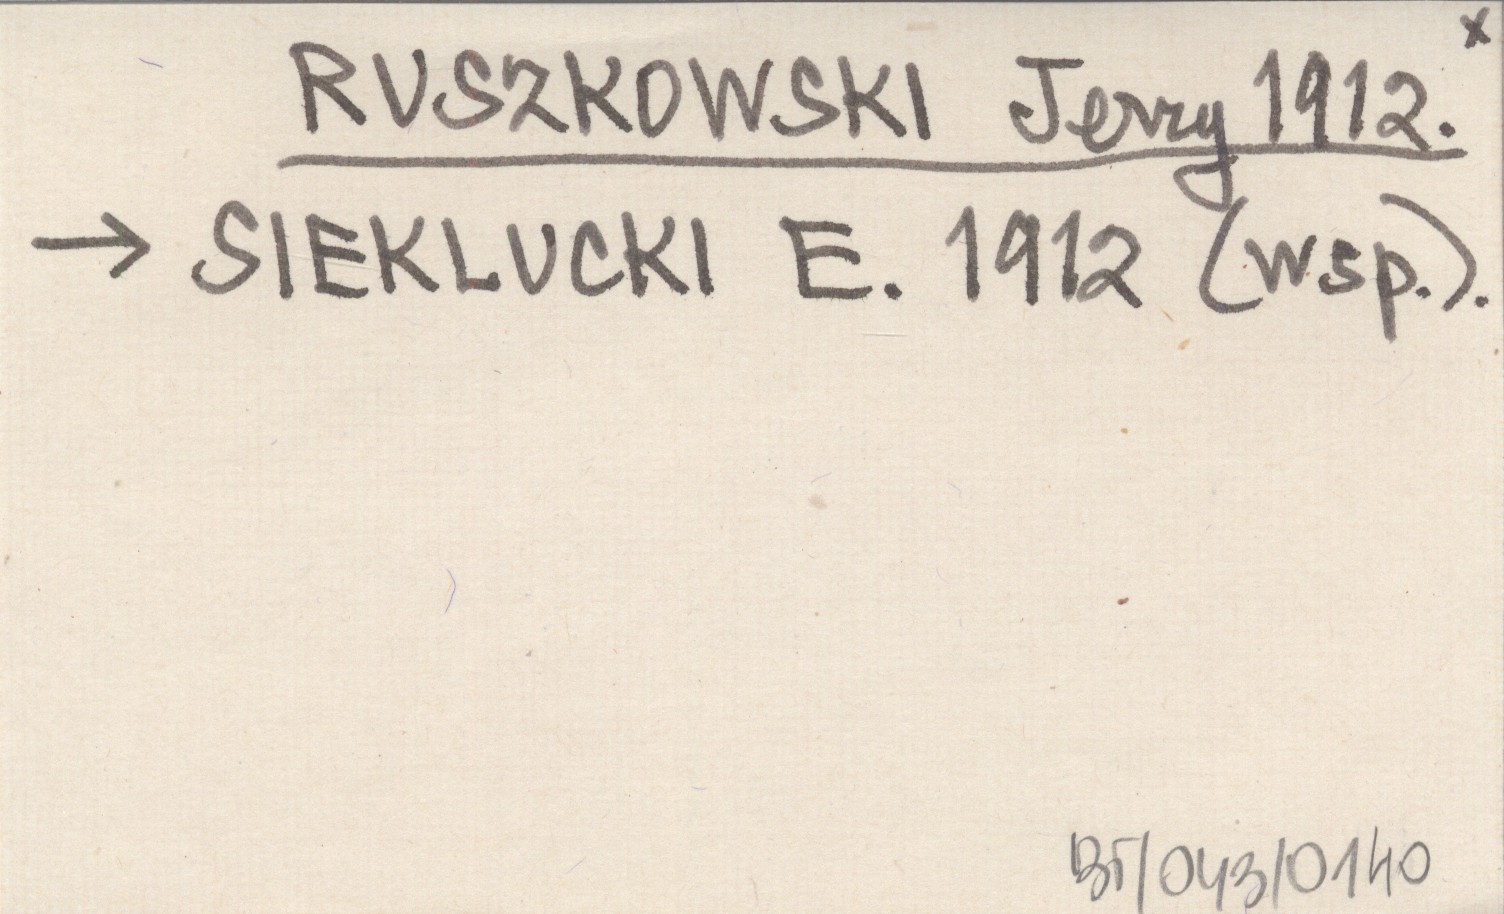 x
RUSZKOWSKI Jerzy 1912.
→ SIEKLUCKI E. 1912 (wsp.).
BT/043/0140